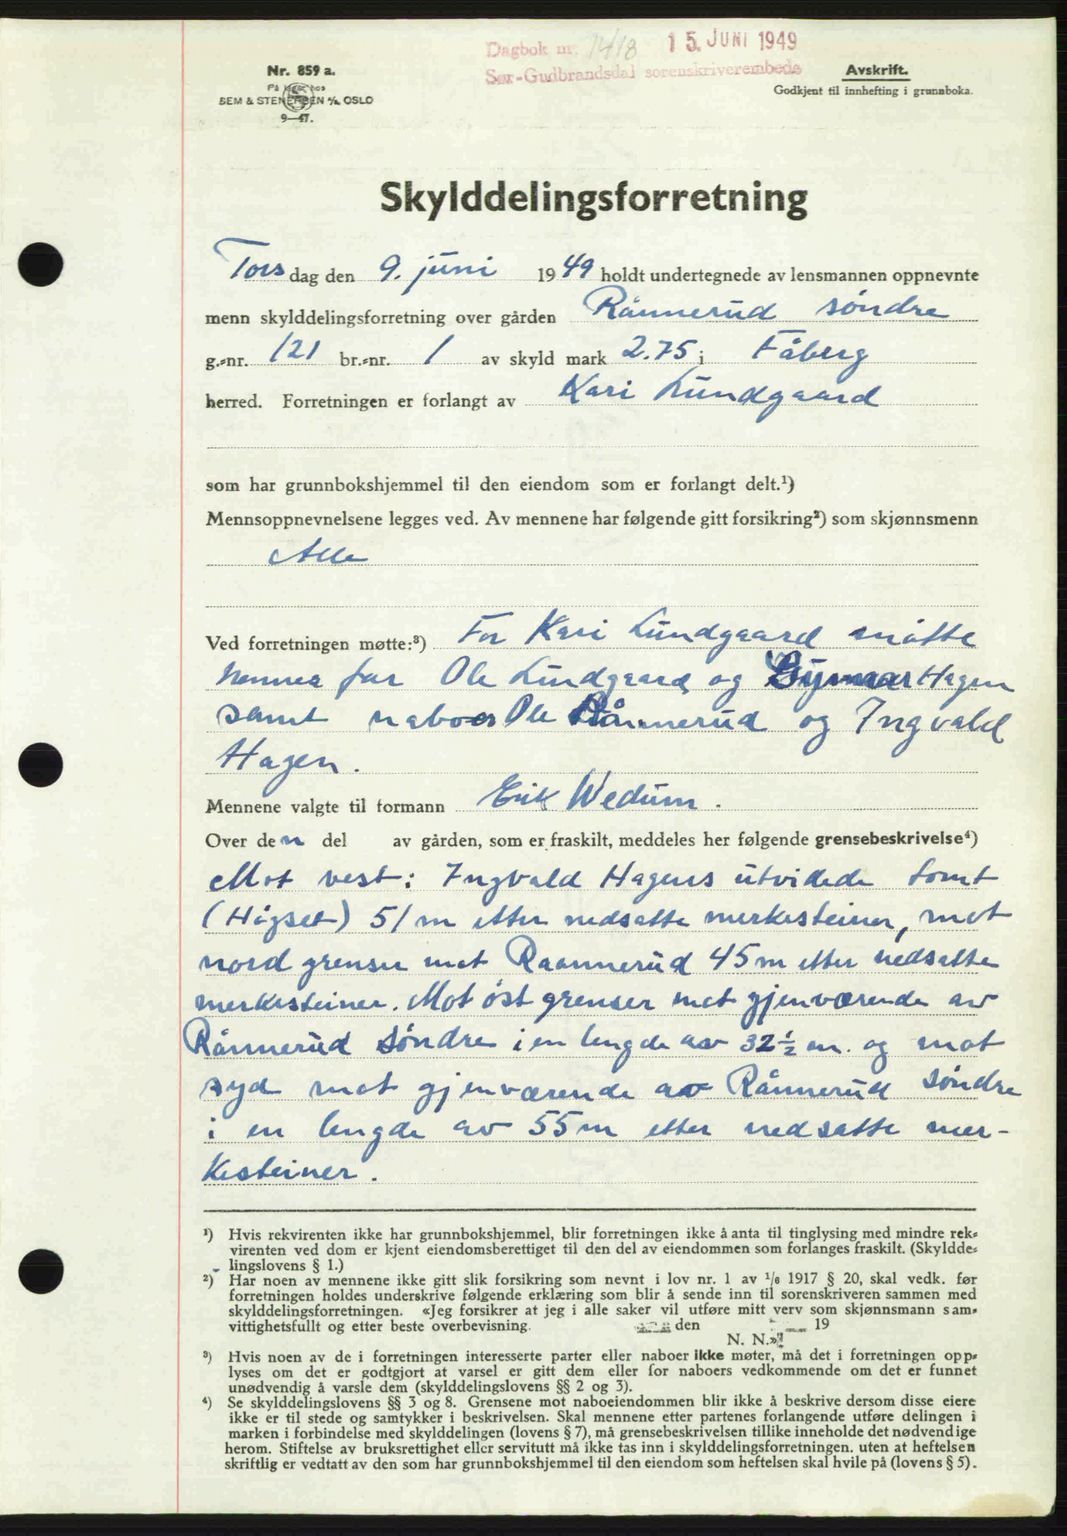 Dagbok nr. 1418 15. JUNI 1949
Sør-Gudbrandsdal sorenskriverembede
Nr. 859 a.
På lager hos
SEM & STENERSEN A/S OSLO
9—47.
Avskrift.
Godkjent til innhefting i grunnboka.
Skylddelingsforretning
Torsdag den 9. juni 1949 holdt undertegnede av lensmannen oppnevnte
menn skylddelingsforretning over gården Rånnerud søndre
g.-nr. 121 br.-nr. 1 av skyld mark 2.75 i Fåberg
herred. Forretningen er forlangt av Kari Lundgaard
som har grunnbokshjemmel til den eiendom som er forlangt delt.¹)
Mennsoppnevnelsene legges ved. Av mennene har følgende gitt forsikring²) som skjønnsmenn
Alle
Ved forretningen møtte:³) For Kari Lundgaard møtte
hennes far Ole Lundgaard og Hagen
samt naboer Ole Rånnerud og Ingvald
Hagen.
Mennene valgte til formann Erik Wedum.
Over den del av gården, som er fraskilt, meddeles her følgende grensebeskrivelse⁴)
Mot vest: Ingvald Hagens utvidede tomt
(Hågset) 51 m etter nedsatte merkesteiner, mot
nord grenser mot Raannerud 45 m etter nedsatte
merkesteiner. Mot øst grenser mot gjenværende av
Rånnerud søndre i en lengde av 32 ½ m. og mot
syd mot gjenværende av Rånnerud søndre
i en lengde av 55 m etter nedsatte mer-
kesteiner.
¹) Hvis rekvirenten ikke har grunnbokshjemmel, blir forretningen ikke å anta til tinglysing med mindre rek-
virenten ved dom er kjent eiendomsberettiget til den del av eiendommen som forlanges fraskilt. (Skyldde-
lingslovens § 1.)
²) Har noen av mennene ikke gitt slik forsikring som nevnt i lov nr. 1 av 1/6 1917 § 20, skal vedk. før
forretningen holdes underskrive følgende erklæring som blir å sende inn til sorenskriveren sammen med
skylddelingsforretningen. «Jeg forsikrer at jeg i alle saker vil utføre mitt verv som skjønnsmann sam-
vittighetsfullt og etter beste overbevisning. den 19
N. N.»
³) Hvis noen av de i forretningen interesserte parter eller naboer ikke møter, må det i forretningen opp-
lyses om det er godtgjort at varsel er gitt dem eller for naboers vedkommende om det er funnet
unødvendig å varsle dem (skylddelingslovens §§ 2 og 3).
⁴) Se skylddelingslovens §§ 3 og 8. Grensene mot naboeiendommen blir ikke å beskrive dersom disse eiere
ikke er til stede og samtykker i beskrivelsen. Skal mennene etter partenes forlangende utføre delingen i
marken i forbindelse med skylddelingen (lovens § 7), må grensebeskrivelsen tillike inneholde det nødvendige
herom. Stiftelse av bruksrettighet eller servitutt må ikke tas inn i skylddelingsforretningen. uten at heftelsen
skriftlig er vedtatt av den som har grunnbokshjemmel til den eiendom som heftelsen skal hvile på (lovens § 5).